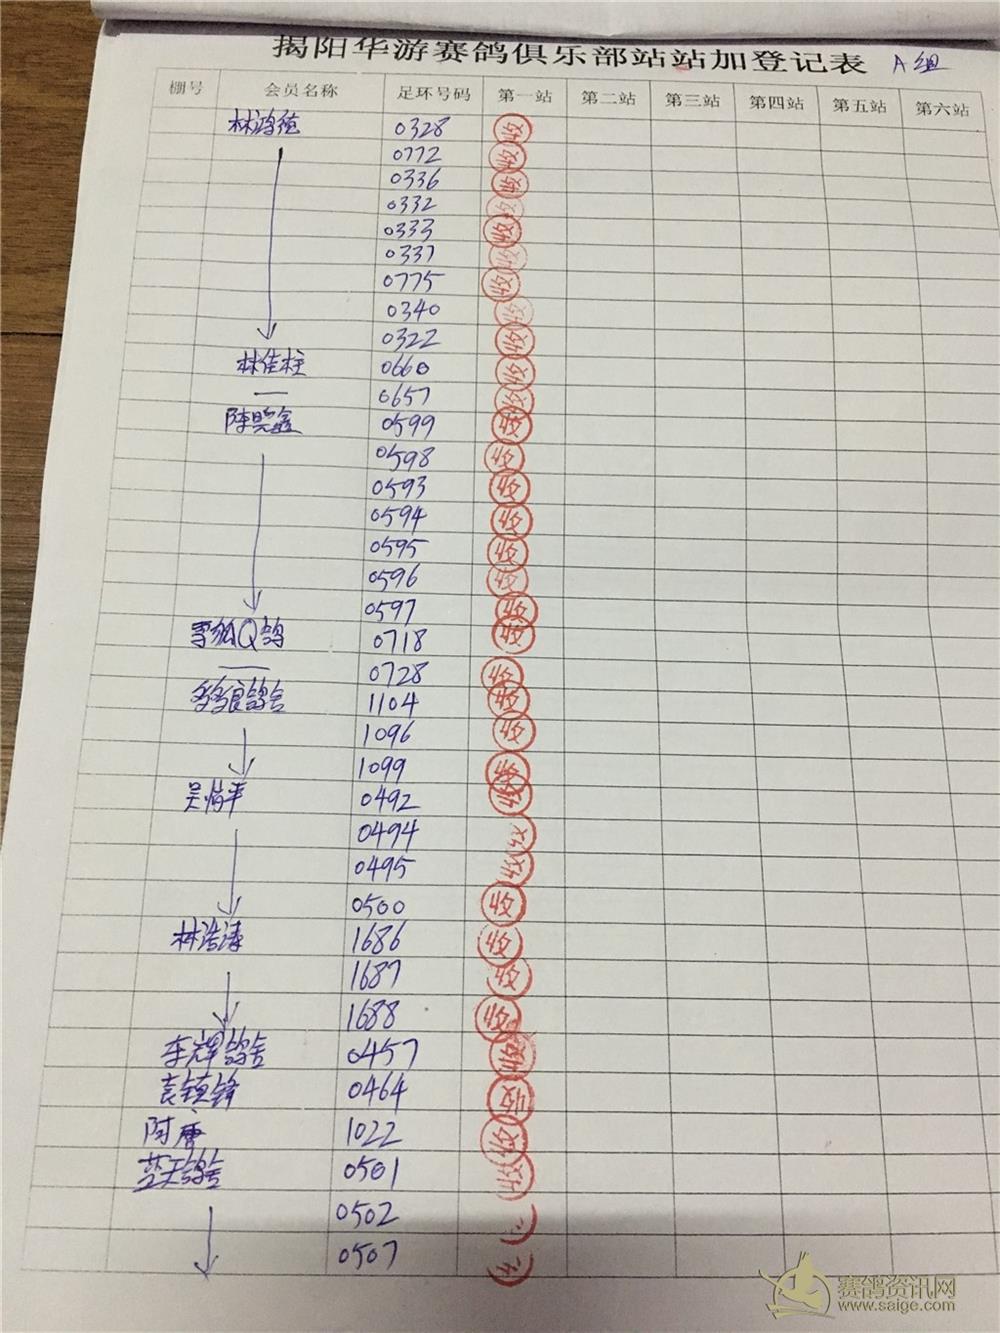 揭阳华游赛鸽俱乐部站站加登记表 A组
棚号 会员名称 足环号码 第一站 第二站 第三站 第四站 第五站 第六站
0328 收
0772 收
0336 收
0332 收
0333 收
0337 收
0775 收
0340 收
0322 收
林佳柱 0660 收
0657 收
0599 收
0598 收
0593 收
0594 收
0595 收
0596 收
0597 收
雪狐Q鸽 0718 收
0728 收
1104 收
1096 收
1099 收
0492 收
0494 收
0495 收
0500 收
林浩涛 1686 收
1687 收
1688 收
李辉鸽舍 0457 收
袁镇锋 0464 收
1022 收
蓝天鸽舍 0501 收
0502
0507
赛鸽资讯网
www.saige.com